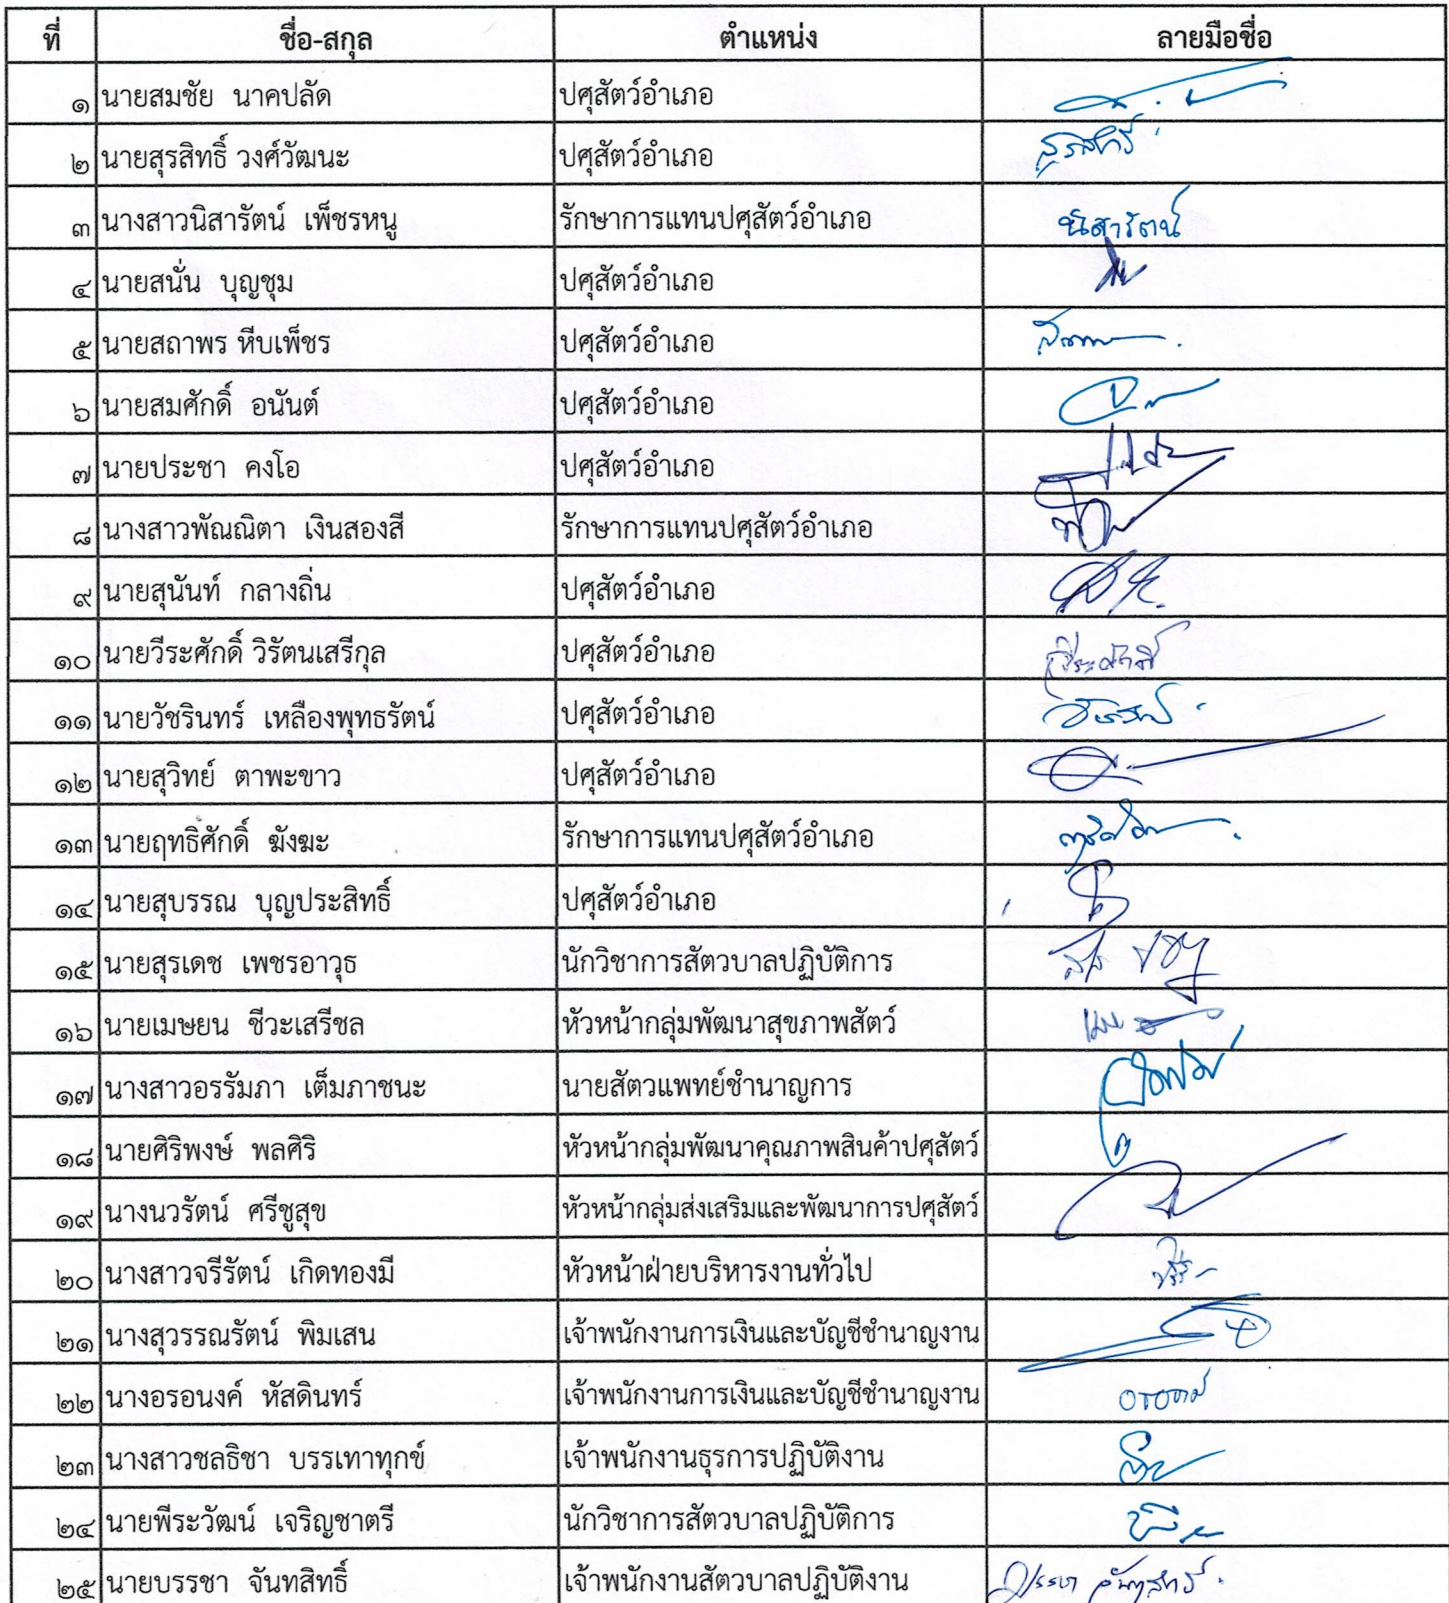 ที่ ชื่อ-สกุล ตำแหน่ง ลายมือชื่อ
๑ นายสมชัย นาคปลัด ปศุสัตว์อำเภอ
๒ นายสุรสิทธิ์ วงศ์วัฒนะ ปศุสัตว์อำเภอ สุรสิทธิ์
๓ นางสาวนิสารัตน์ เพ็ชรหนู รักษาการแทนปศุสัตว์อำเภอ นิสารัตน์
๔ นายสนั่น บุญชุม ปศุสัตว์อำเภอ
๕ นายสถาพร หีบเพ็ชร ปศุสัตว์อำเภอ
๖ นายสมศักดิ์ อนันต์ ปศุสัตว์อำเภอ
๗ นายประชา คงโอ ปศุสัตว์อำเภอ
๘ นางสาวพัณณิตา เงินสองสี รักษาการแทนปศุสัตว์อำเภอ
๙ นายสุนันท์ กลางถิ่น ปศุสัตว์อำเภอ
๑๐ นายวีระศักดิ์ วิรัตนเสรีกุล ปศุสัตว์อำเภอ วีระศักดิ์
๑๑ นายวัชรินทร์ เหลืองพุทธรัตน์ ปศุสัตว์อำเภอ
๑๒ นายสุวิทย์ ตาพะขาว ปศุสัตว์อำเภอ
๑๓ นายฤทธิศักดิ์ ฆังฆะ รักษาการแทนปศุสัตว์อำเภอ
๑๔ นายสุบรรณ บุญประสิทธิ์ ปศุสัตว์อำเภอ
๑๕ นายสุรเดช เพชรอาวุธ นักวิชาการสัตวบาลปฏิบัติการ
๑๖ นายเมษยน ชีวะเสรีชล หัวหน้ากลุ่มพัฒนาสุขภาพสัตว์
๑๗ นางสาวอรรัมภา เต็มภาชนะ นายสัตวแพทย์ชำนาญการ
๑๘ นายศิริพงษ์ พลศิริ หัวหน้ากลุ่มพัฒนาคุณภาพสินค้าปศุสัตว์
๑๙ นางนวรัตน์ ศรีชูสุข หัวหน้ากลุ่มส่งเสริมและพัฒนาการปศุสัตว์
๒๐ นางสาวจรีรัตน์ เกิดทองมี หัวหน้าฝ่ายบริหารงานทั่วไป
๒๑ นางสุวรรณรัตน์ พิมเสน เจ้าพนักงานการเงินและบัญชีชำนาญงาน
๒๒ นางอรอนงค์ หัสดินทร์ เจ้าพนักงานการเงินและบัญชีชำนาญงาน อรอนงค์
๒๓ นางสาวชลธิชา บรรเทาทุกข์ เจ้าพนักงานธุรการปฏิบัติงาน
๒๔ นายพีระวัฒน์ เจริญชาตรี นักวิชาการสัตวบาลปฏิบัติการ
๒๕ นายบรรชา จันทสิทธิ์ เจ้าพนักงานสัตวบาลปฏิบัติงาน บรรชา จันทสิทธิ์